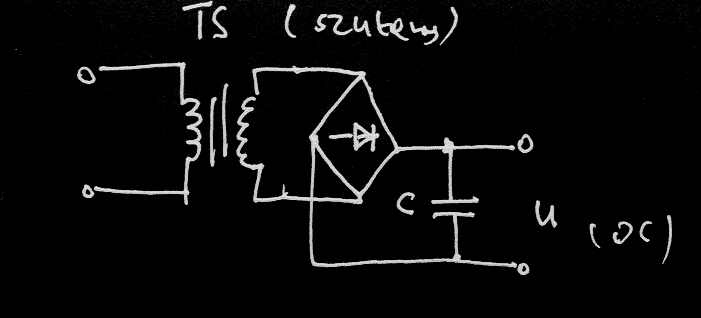 TS (szuterny)
C
U (DC)